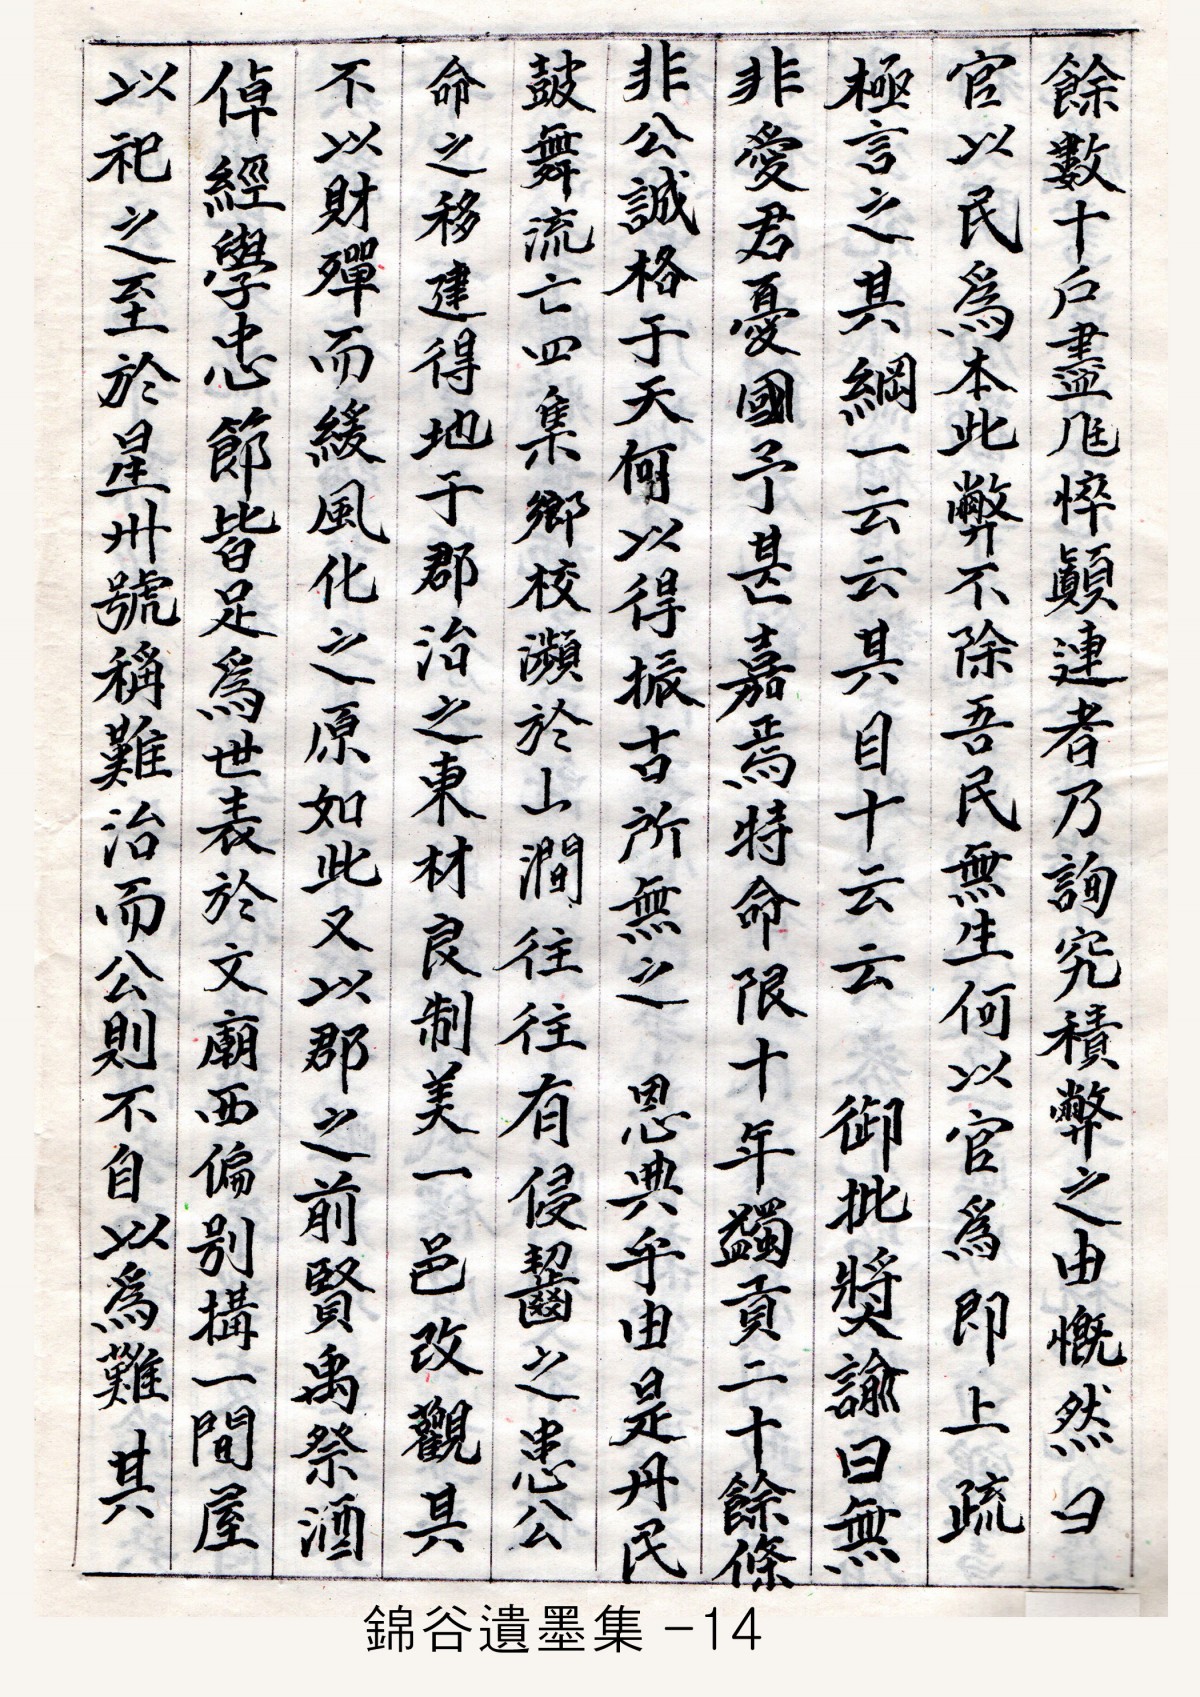 餘數十戶盡尫悴顚連者乃詢究積弊之由慨然曰
官以民爲本此弊不除吾民無生何以官爲即上疏
極言之其綱一云云其目十云云 御批奬諭曰無
非愛君憂國予甚嘉焉特命限十年蠲貢二十餘條
非公誠格于天何以得振古所無之 恩典乎由是丹民
鼓舞流亡四集鄕校瀕於山澗往往有侵齧之患公
命之移建得地于郡治之東材良制美一邑改觀其
不以財殫而緩風化之原如此又以郡之前賢禹祭酒
倬經學忠節皆足爲世表於文廟西偏別搆一間屋
以祀之至於星州號稱難治而公則不自以爲難其
錦谷遺墨集 -14